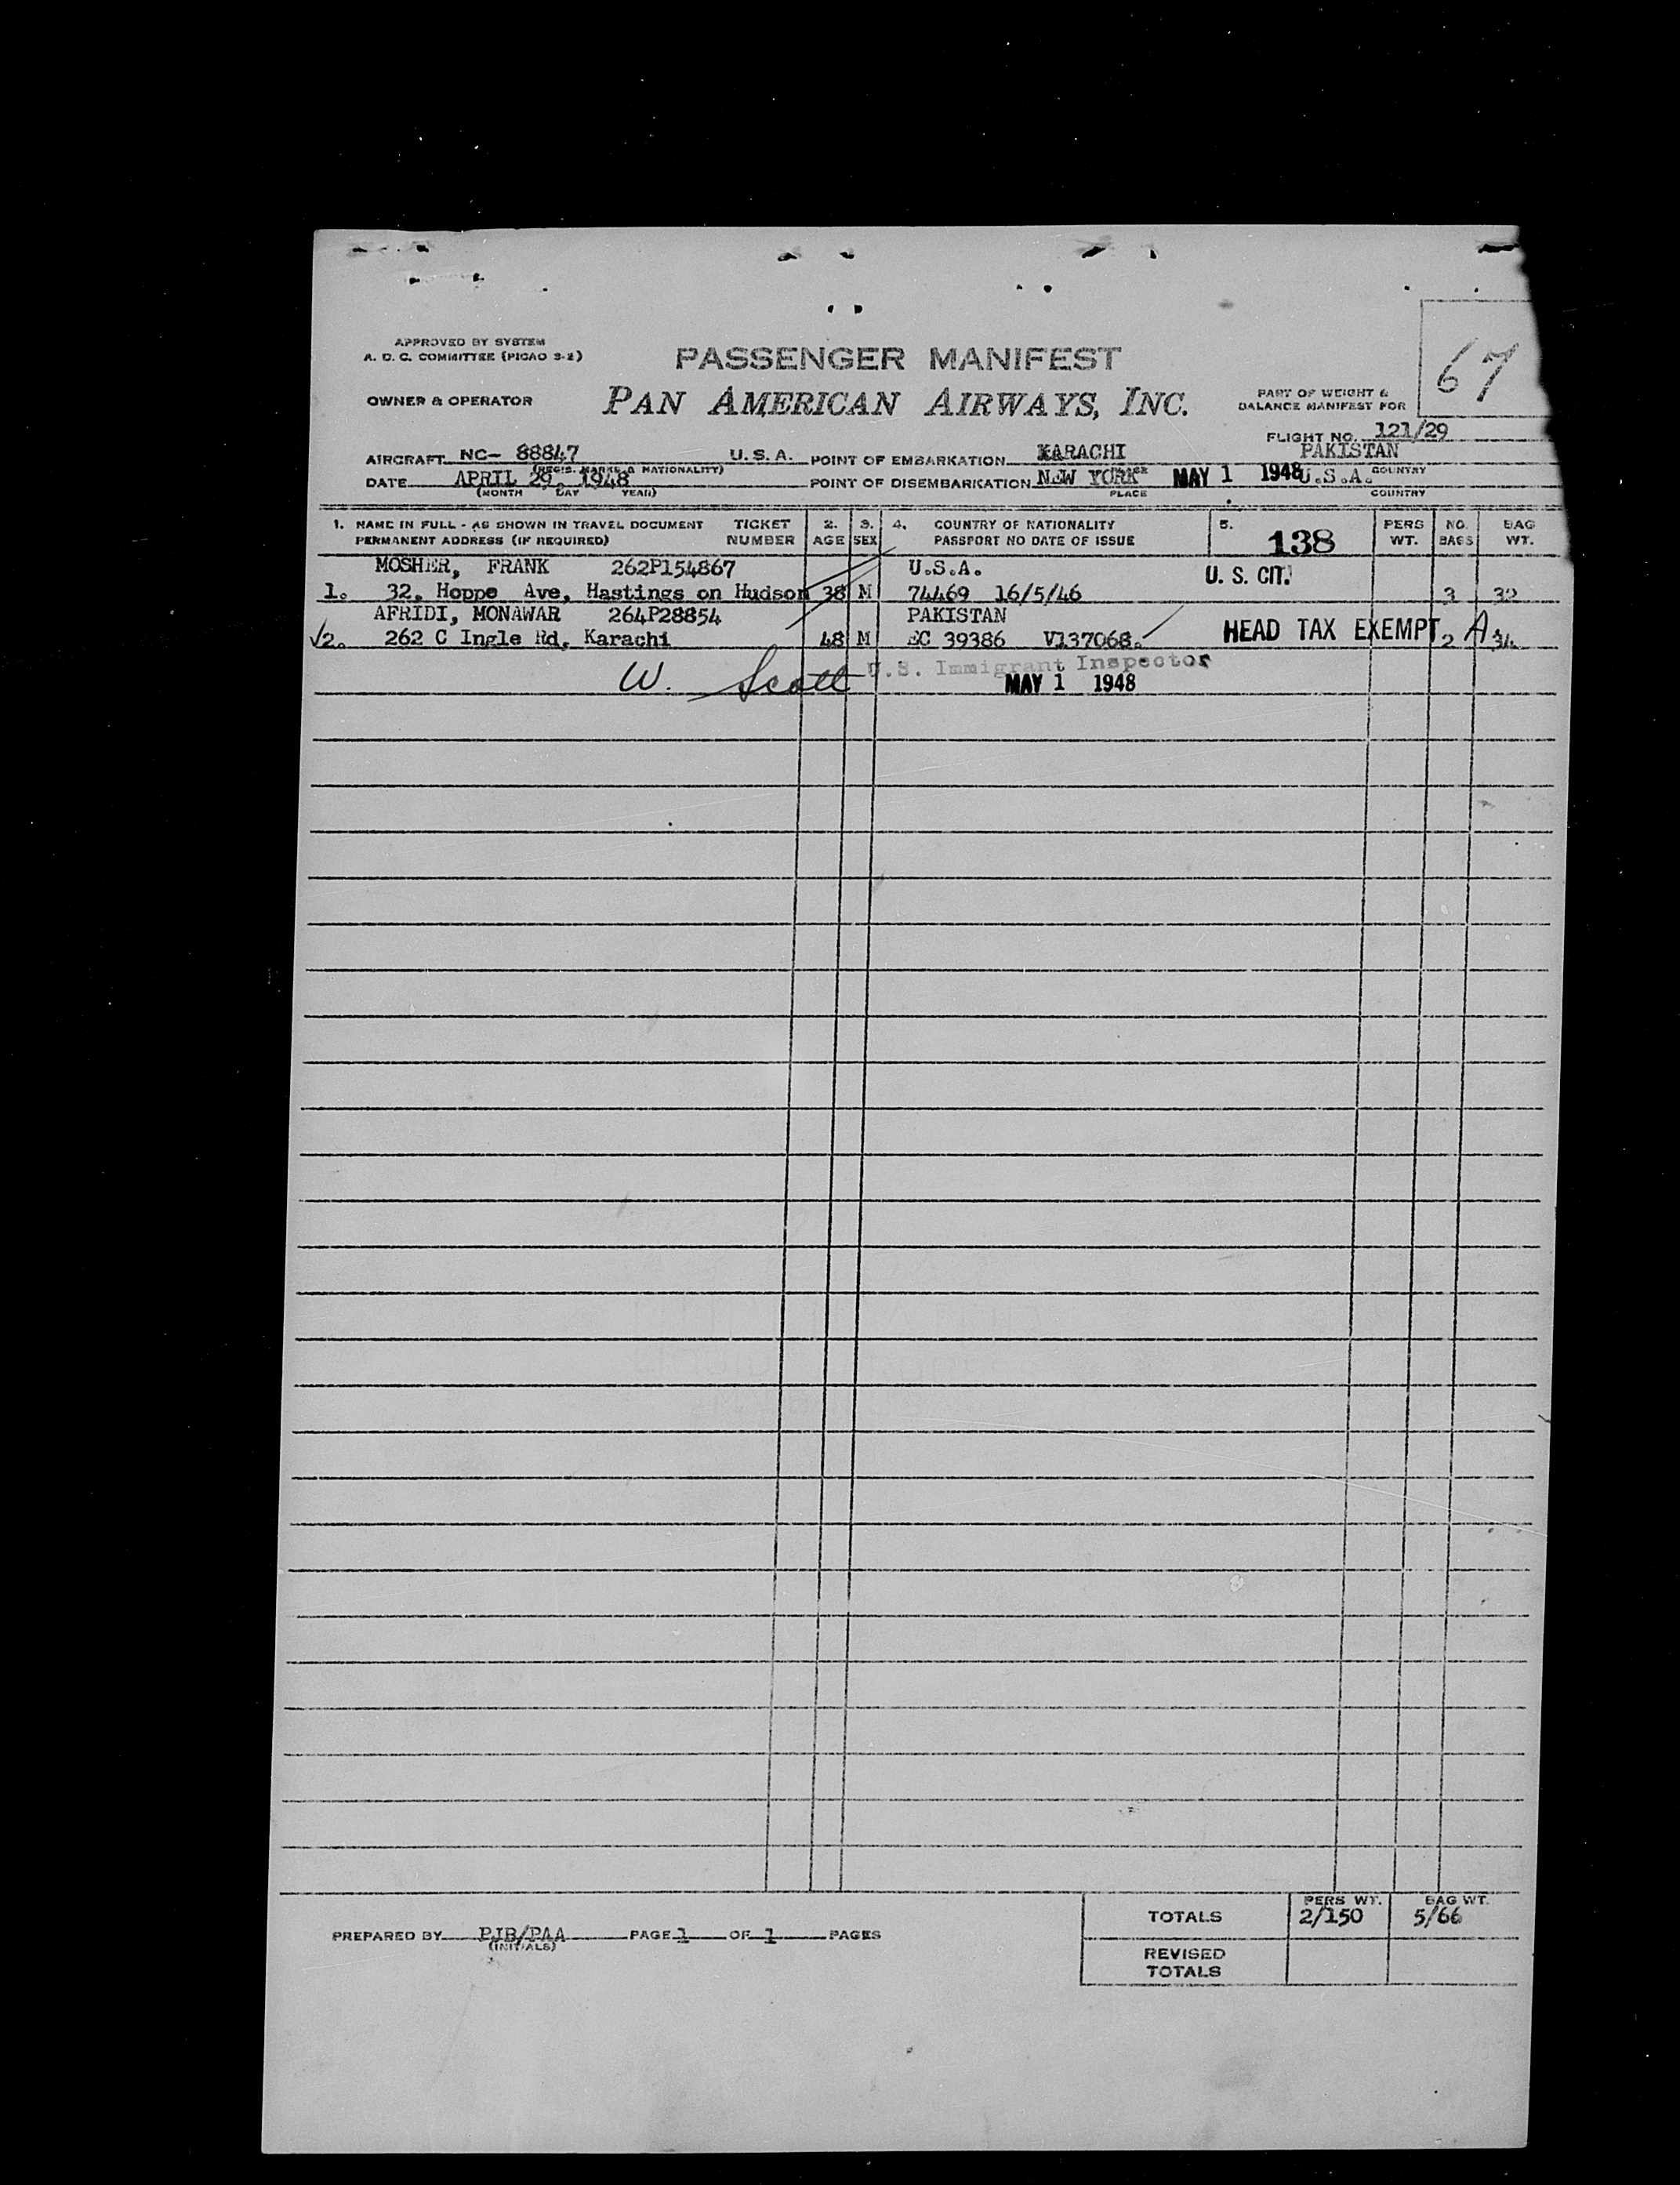 67
APPROVED BY SYSTEM
A. D. C. COMMITTEE (PICAO 3-2)
PASSENGER MANIFEST
OWNER & OPERATOR
PAN AMERICAN AIRWAYS, INC.
PART OF WEIGHT &
BALANCE MANIFEST FOR
FLIGHT NO. 121/29
AIRCRAFT NC- 88847 U. S. A. POINT OF EMBARKATION KARACHI PAKISTAN
(REGIS. MARKS & NATIONALITY)
DATE APRIL 29, 1948 POINT OF DISEMBARKATION NEW YORK MAY 1 1948 U.S.A. COUNTRY
(MONTH DAY YEAR) PLACE COUNTRY
1. NAME IN FULL - AS SHOWN IN TRAVEL DOCUMENT TICKET 2. 3. 4. COUNTRY OF NATIONALITY 5. PERS NO. BAG
PERMANENT ADDRESS (IF REQUIRED) NUMBER AGE SEX PASSPORT NO DATE OF ISSUE 138 WT. BAGS WT.
MOSHER, FRANK 262P154867 U.S.A. U. S. CIT.
1. 32, Hoppe Ave, Hastings on Hudson 38 M 74469 16/5/46 3 32
AFRIDI, MONAWAR 264P28854 PAKISTAN
√2. 262 C Ingle Rd, Karachi 48 M EC 39386 V137068. HEAD TAX EXEMPT 2 A 34
W. Scott U.S. Immigrant Inspector
MAY 1 1948
PERS WT. BAG WT.
TOTALS 2/150 5/66
PREPARED BY PJB/PAA PAGE 1 OF 1 PAGES
(INITIALS)
REVISED
TOTALS